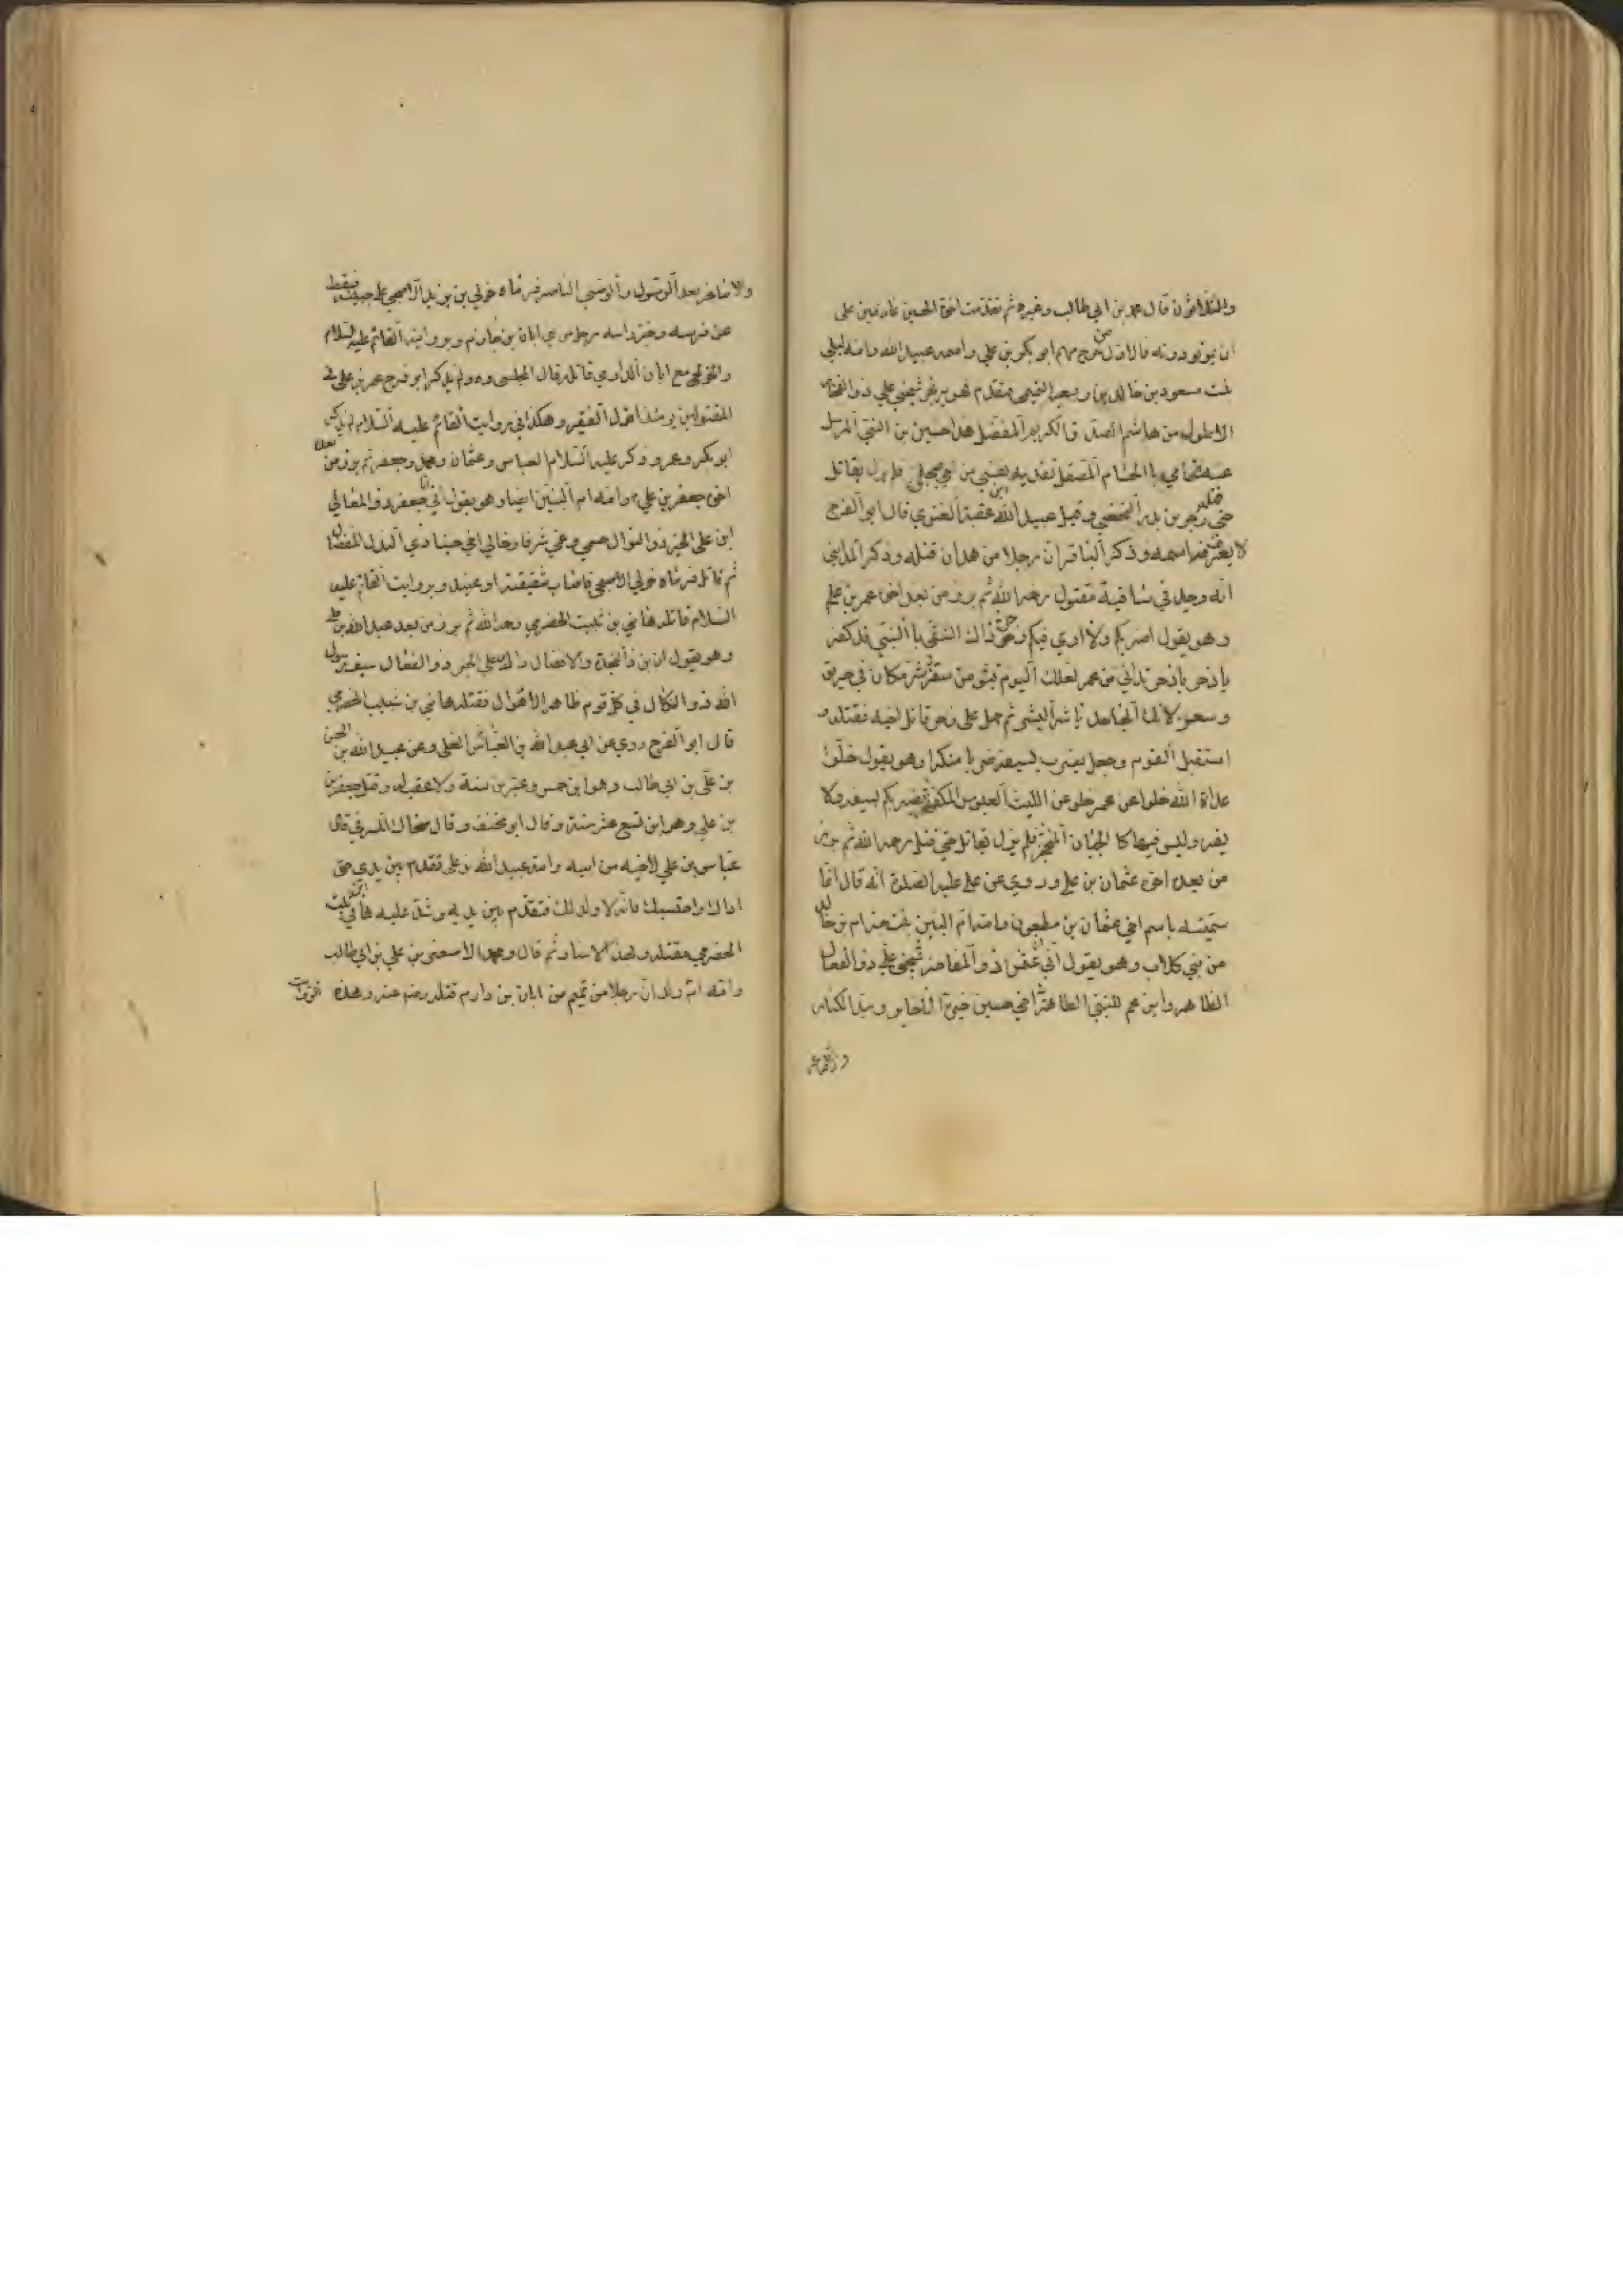 والثلاثون قال محمد بن ابي طالب وغيره ثم تقدمت اخوة الحسين عازمين على
ان يموتوا دونه فالاول من خرج منهم ابو بكر بن علي واسمه عبيد الله وامه ليلى
بنت مسعود بن خالد بن ربيعه التيمي فتقدم وهو يرتجز شيخي علي ذو الفخار
الاطول من هاشم الصدق الكريم المفضل هذا حسين بن النبي المرسل
عنه نحامي بالحسام المصقل تفديه نفسي من اخ مبجل فلم يزل يقاتل
حتى قتله زجر بن بدر النخعي وقيل عبيد الله بن عقبة الغنوي قال ابو الفرج
لا يعرف اسمه وذكر الباقر ان رجلا من همدان قتله وذكر المدايني
انه وجد في ساقية مقتول رحمه الله ثم برز من بعد اخوه عمر بن علي
وهو يقول اضربكم ولا ارى فيكم زجر ذاك الشقي بالنبي قد كفر
يا زجر يا زجر تداني من عمر لعلك اليوم تبوء من سقر شر مكان في حريق
وسعر لانك الجاحد يا شر البشر ثم حمل على زجر قاتل اخيه فقتله و
استقبل القوم وجعل يضرب بسيفه ضربا منكرا وهو يقول خلوا
عداة الله خلوا عن عمر خلوا عن الليث العبوس المكفهر يضربكم بسيفه ولا
يفر وليس فيها كالجبان المنحجر فلم يزل يقاتل حتى قتل رحمه الله ثم برز
من بعده اخوه عثمان بن علي وروي عن علي عليه الصلوة انه قال انما
سميته باسم اخي عثمان بن مظعون وامه ام البنين بنت حزام بن خالد
من بني كلاب وهو يقول اني انا عثمان ذو المفاخر شيخي علي ذو الفعال
الطاهر وابن عم للنبي الطاهر اخي حسين خيرة الاخاير وسيد الكبار
والاصاغر
والاصاغر بعد الرسول والوصي الناصر فرماه خولي بن يزيد الاصبحي على جبينه فسقط
عن فرسه وجز راسه رجل من بني ابان بن دارم وبرواية القائم عليه السلام
والخولي مع ابان الداري قاتله قال المجلسي ره ولم يذكر ابو فرج عمر بن علي في
المقتولين يومئذ اقول الفقير وهكذا في روايت القائم عليه السلام لم يذكر
ابو بكر وعمر وذكر عليه السلام العباس وعثمان ومحمد وجعفر ثم برز من بعده
اخوه جعفر بن علي وامه ام البنين ايضا وهو يقول اني انا جعفر ذو المعالي
ابن علي الخير ذو النوال حسبي وعمي شرفا وخالي احمي حسينا ذي الندى المفضال
ثم قاتل فرماه خولي الاصبحي فاصاب شقيقته او عينه وبروايت القائم عليه
السلام قاتله هاني بن ثبيت الحضرمي رحمه الله ثم برز من بعد عبد الله بن علي
وهو يقول انا ابن ذا النجدة والافضال ذاك علي الخير ذو الفعال سيف رسول
الله ذو النكال في كل قوم ظاهر الاهوال فقتله هاني بن شبيب الحضرمي
قال ابو الفرج روي عن ابي عبد الله بن العباس العلى وعن عبيد الله بن الحسن
بن علي بن ابي طالب وهو ابن خمس وعشرين سنة ولا عقب له وقتل جعفر بن
بن علي وهو ابن تسع عشر سنة وقال ابو مخنف وقال ضحاك المشرقي قال
عباس بن علي لاخيه من ابيه وامه عبيد الله بن علي تقدم بين يدي حتى
اراك واحتسبك فانه لا ولد لك فتقدم بين يديه وشد عليه هاني بن ثبيت
الحضرمي فقتله وبهذا الاسناد ثم قال ومحمد الاصغر بن علي بن ابي طالب
وامه ام ولد ان رجلا من تميم من ابان بن دارم قتله رضي عنه وهذه الروايت